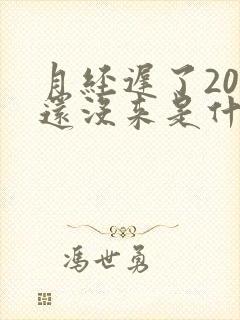 月经遲了20
還沒来是什
馮世勇